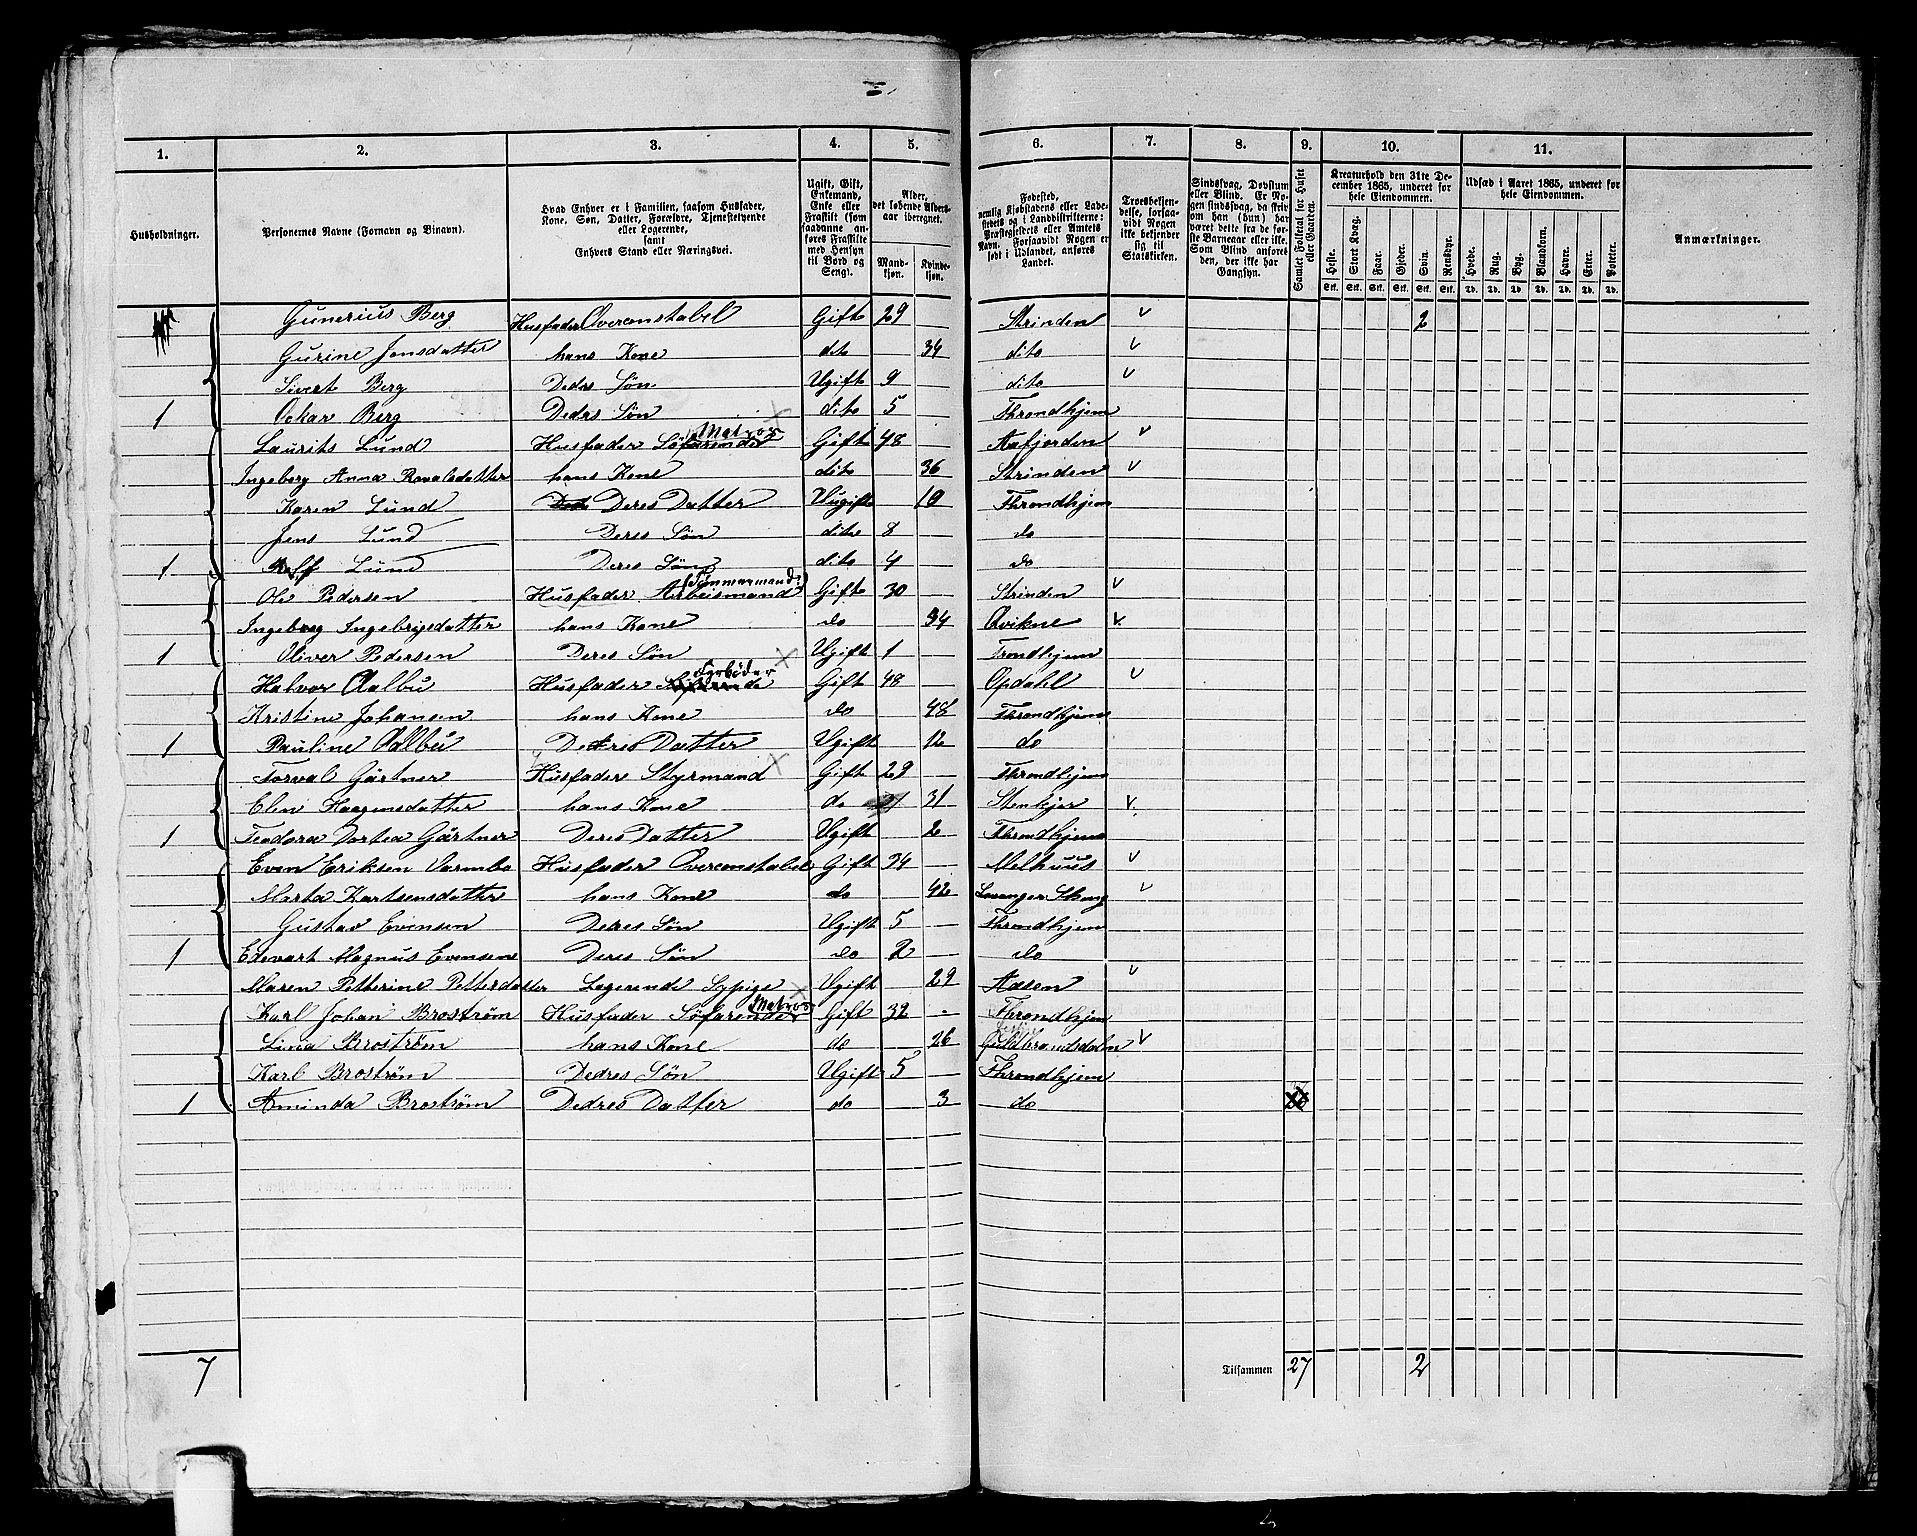 1. 2. 3. 4. 5. 6. 7. 8. 9. 10. 11.
Husholdninger. Personernes Navne (Fornavn og Binavn). Hvad Enhver er i Familien, saasom Husfader, Kone, Søn, Datter, Forældre, Tjenestetyende eller Logerende, samt Enhvers Stand eller Næringsvei. Ugift, Gift, Enkemand, Enke eller Fraskilt (som saadanne anføres Fraskilte med Hensyn til Bord og Seng). Alder, det løbende Alders-aar iberegnet. Mandkjøn. Kvindekjøn. Fødested, nemlig Kjøbstadens eller Ladestedets og i Landdistrikterne: Præstegjeldets eller Amtets Navn. Forsaavidt Nogen er født i Udlandet, anføres Landet. Troesbekjendelse, forsaavidt Nogen ikke bekjender sig til Statskirken. Sindssvag, Døvstum eller Blind. Er Nogen sindssvag, da skriv om han (hun) har været dette fra de første Barneaar eller ikke. Som Blind anføres den, der ikke har Gangsyn. Samlet Folketal for Huset eller Gaarden. Kreaturhold den 31te December 1865, underet for hele Eiendommen. Udsæd i Aaret 1865, underet for hele Eiendommen. Anmærkninger.
Heste. Stort Kvæg. Faar. Gjeder. Svin. Rensdyr. Hvede. Rug. Byg. Blandkorn. Havre. Erter. Poteter.
Stk. Stk. Stk. Stk. Stk. Stk. Td. Td. Td. Td. Td. Td. Td.
Gunerius Berg Husfader Overconstabel Gift 29 Strinden 2
Gurine Jonsdatter hans Kone dito 34 dito
Sivert Berg Deders Søn Ugift 9 dito
1 Oskar Berg Deders Søn dito 5 Throndhjem
Laurits Lund Husfader Søfarende Matros Gift 48 Aafjorden
Ingeberg Anna dito hans Kone 36 Strinden
Karen Lund Deres Datter Uugift 10 Throndhjem
Jens Lund Deres Søn dito 8 do
1 Rolf Lund Deres Søn dito 4 do
Ole Pedersen Husfader Arbeismand (Tømmermand) Gift 30 Strinden
Ingeborg Ingebrigsdatter hans Kone do 34 Qvikne
1 Oliver Pedersen Deres Søn Ugift 1 Trondhjem
Halvor Aalbu Husfader Gift 48 Opdahl
Kristine Johansen hans Kone do 48 Throndhjem
1 Pauline Aalbu Dedres Datter Ugift 12 do
Torval Gärtner Husfader Styrmand Gift 29 Throndhjem
Elen Haagensdatter hans Kone do 31 Stenkjer
1 Teodora Dortea Gärtner Deres Datter Ugift 2 Throndhjem
Even Eriksen Varmbo Husfader Overconstabel Gift 34 Melhuus
Marta Kartsensdatter hans Kone do 42 Levanger Skong
Gustav Evensen Dedres Søn Ugift 5 Throndhjem
1 Edevart Magnus Evensen Deres Søn do 2 do
Maren Petterine Petterdatter Logerende Sypige Ugift 29 Aasen
Karl Johan Broström Husfader Søfarende Matros Gift 32 Throndhjem
Lina Broström hans Kone do 26 Guldbrandsdalen
Karl Broström Dedres Søn Ugift 5 Throndhjem
1 Aminda Broström Dedres Datter do 3 do
7 Tilsammen 27 2